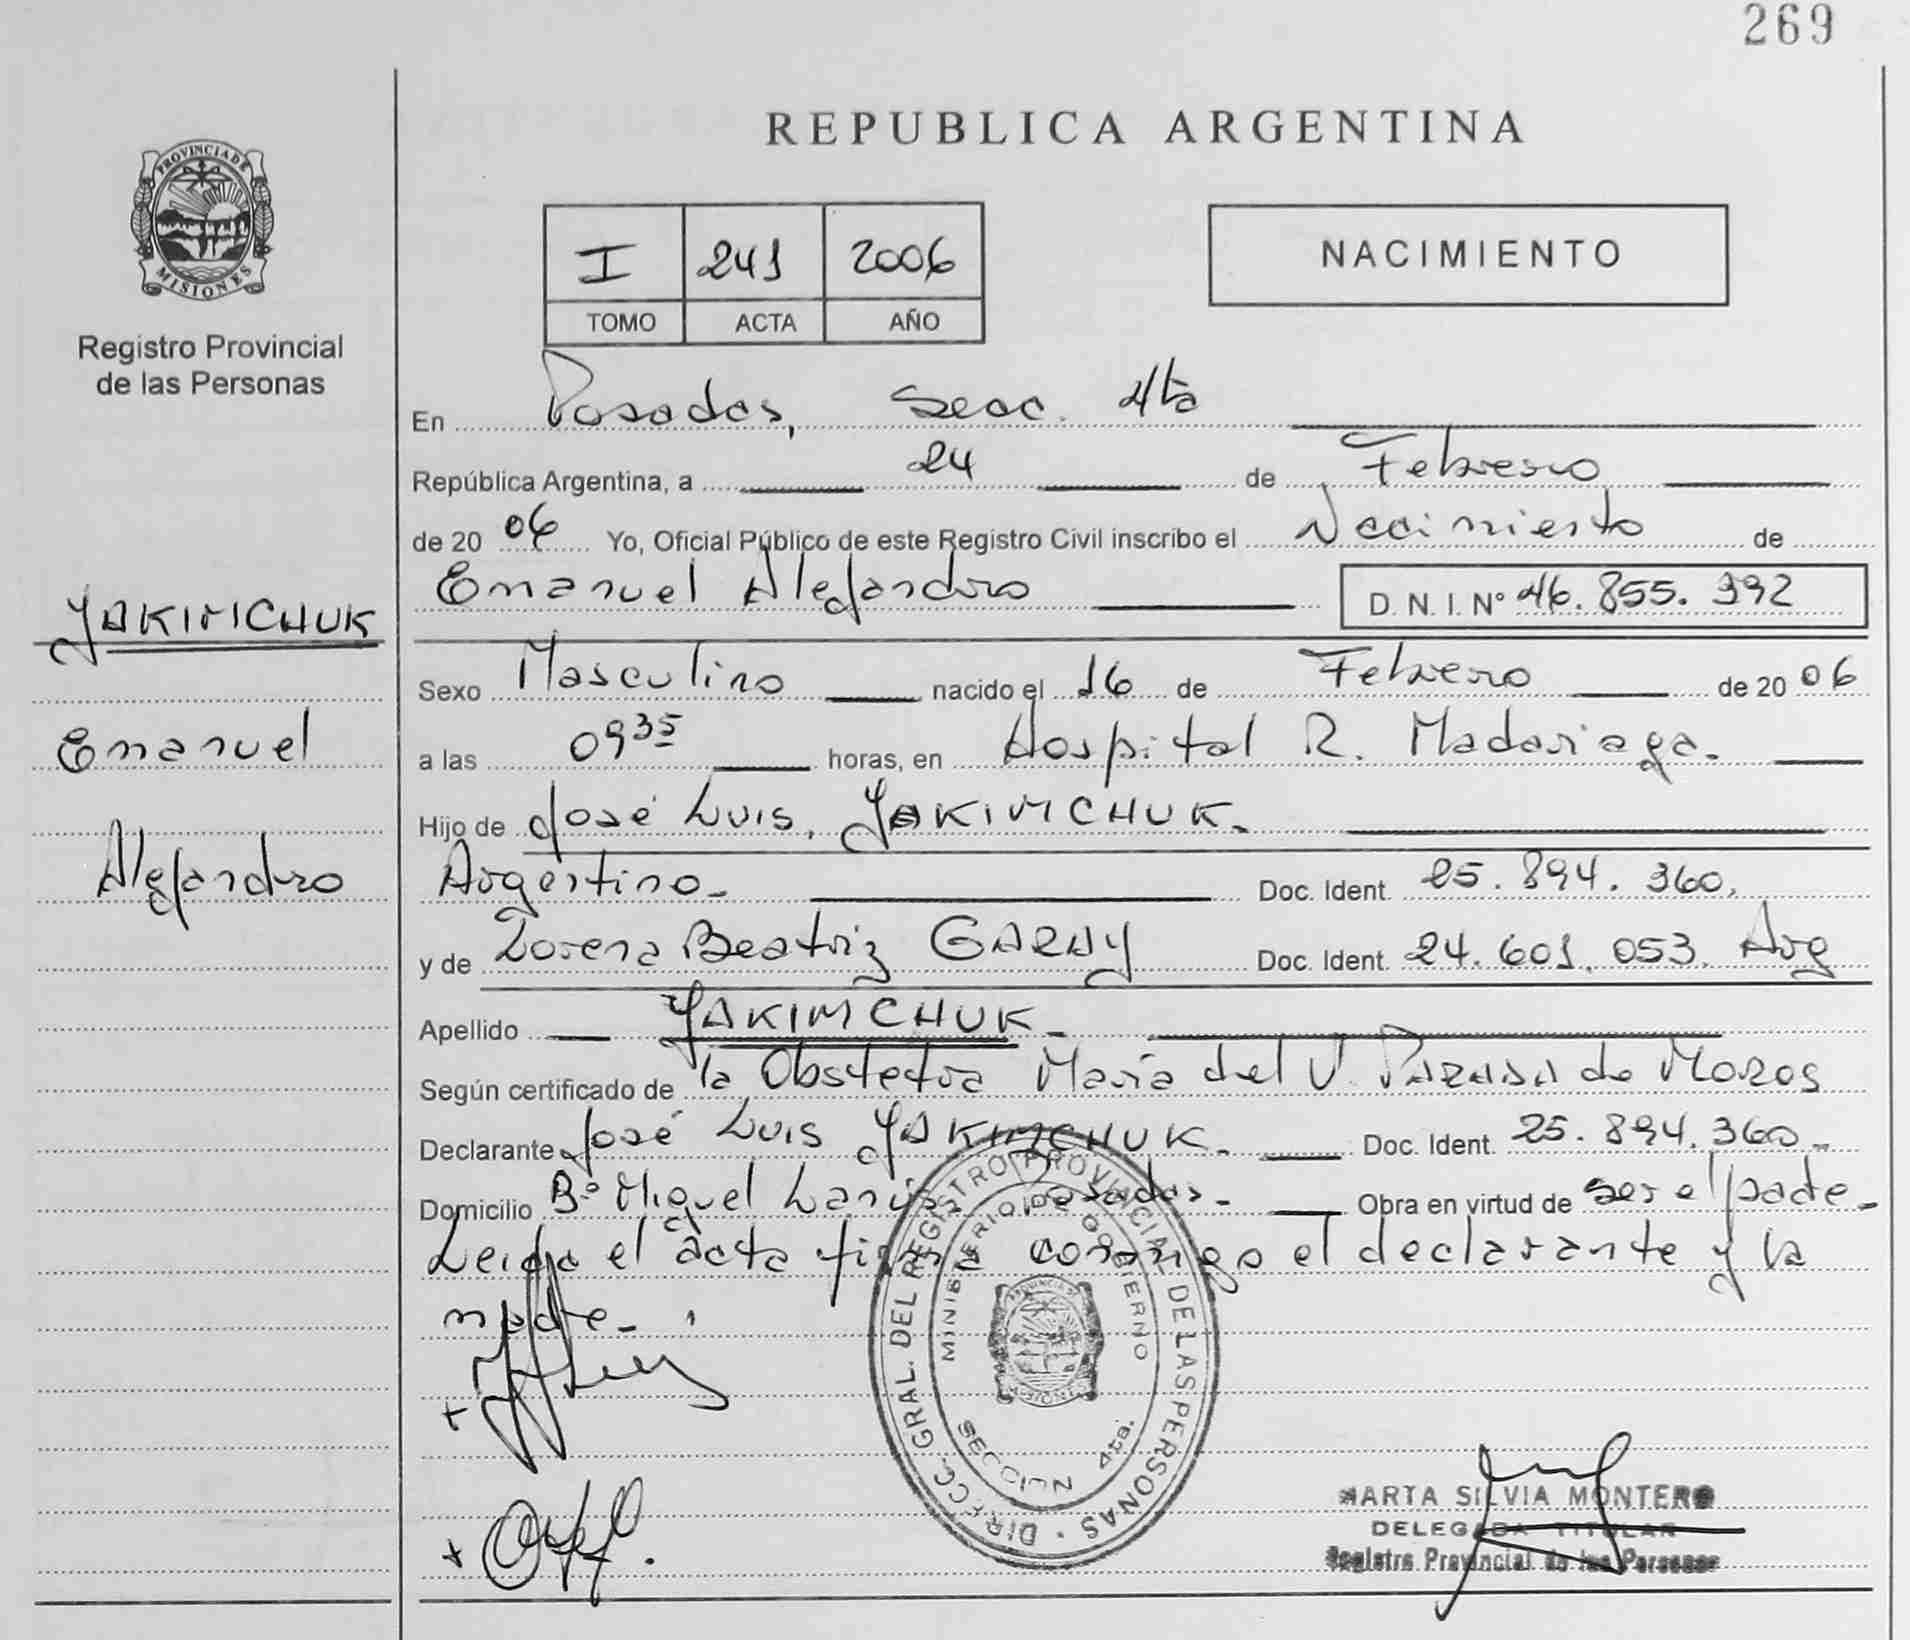 269
REPUBLICA ARGENTINA
PROVINCIA DE
MISIONES
Registro Provincial
de las Personas
I 241 2006
TOMO ACTA AÑO
NACIMIENTO
En Posadas, Secc. 4ta
República Argentina, a 24 de Febrero
de 2006 Yo, Oficial Público de este Registro Civil inscribo el Nacimiento de
Emanuel Alejandro D. N. I. N° 46.855.392
YAKIMCHUK
Emanuel
Alejandro
Sexo Masculino nacido el 16 de Febrero de 2006
a las 09 35 horas, en Hospital R. Madariaga.
Hijo de José Luis, YAKIMCHUK.
Argentino- Doc. Ident. 25.894.360.
y de Lorena Beatriz GARAY Doc. Ident. 24.601.053. Arg
Apellido YAKIMCHUK-
Según certificado de la Obstetra María del V. PARADA de MOROS
Declarante José Luis YAKIMCHUK. Doc. Ident. 25.894.360-
Domicilio B° Miguel Lanús Posadas- Obra en virtud de ser el padre-
Leída el acta firma conmigo el declarante y la
madre-
DIRECC. GRAL. DEL REGISTRO PROVINCIAL DE LAS PERSONAS
MINISTERIO DE GOBIERNO
SECCION 4ta.
MARTA SILVIA MONTERO
DELEGADA TITULAR
Registro Provincial de las Personas